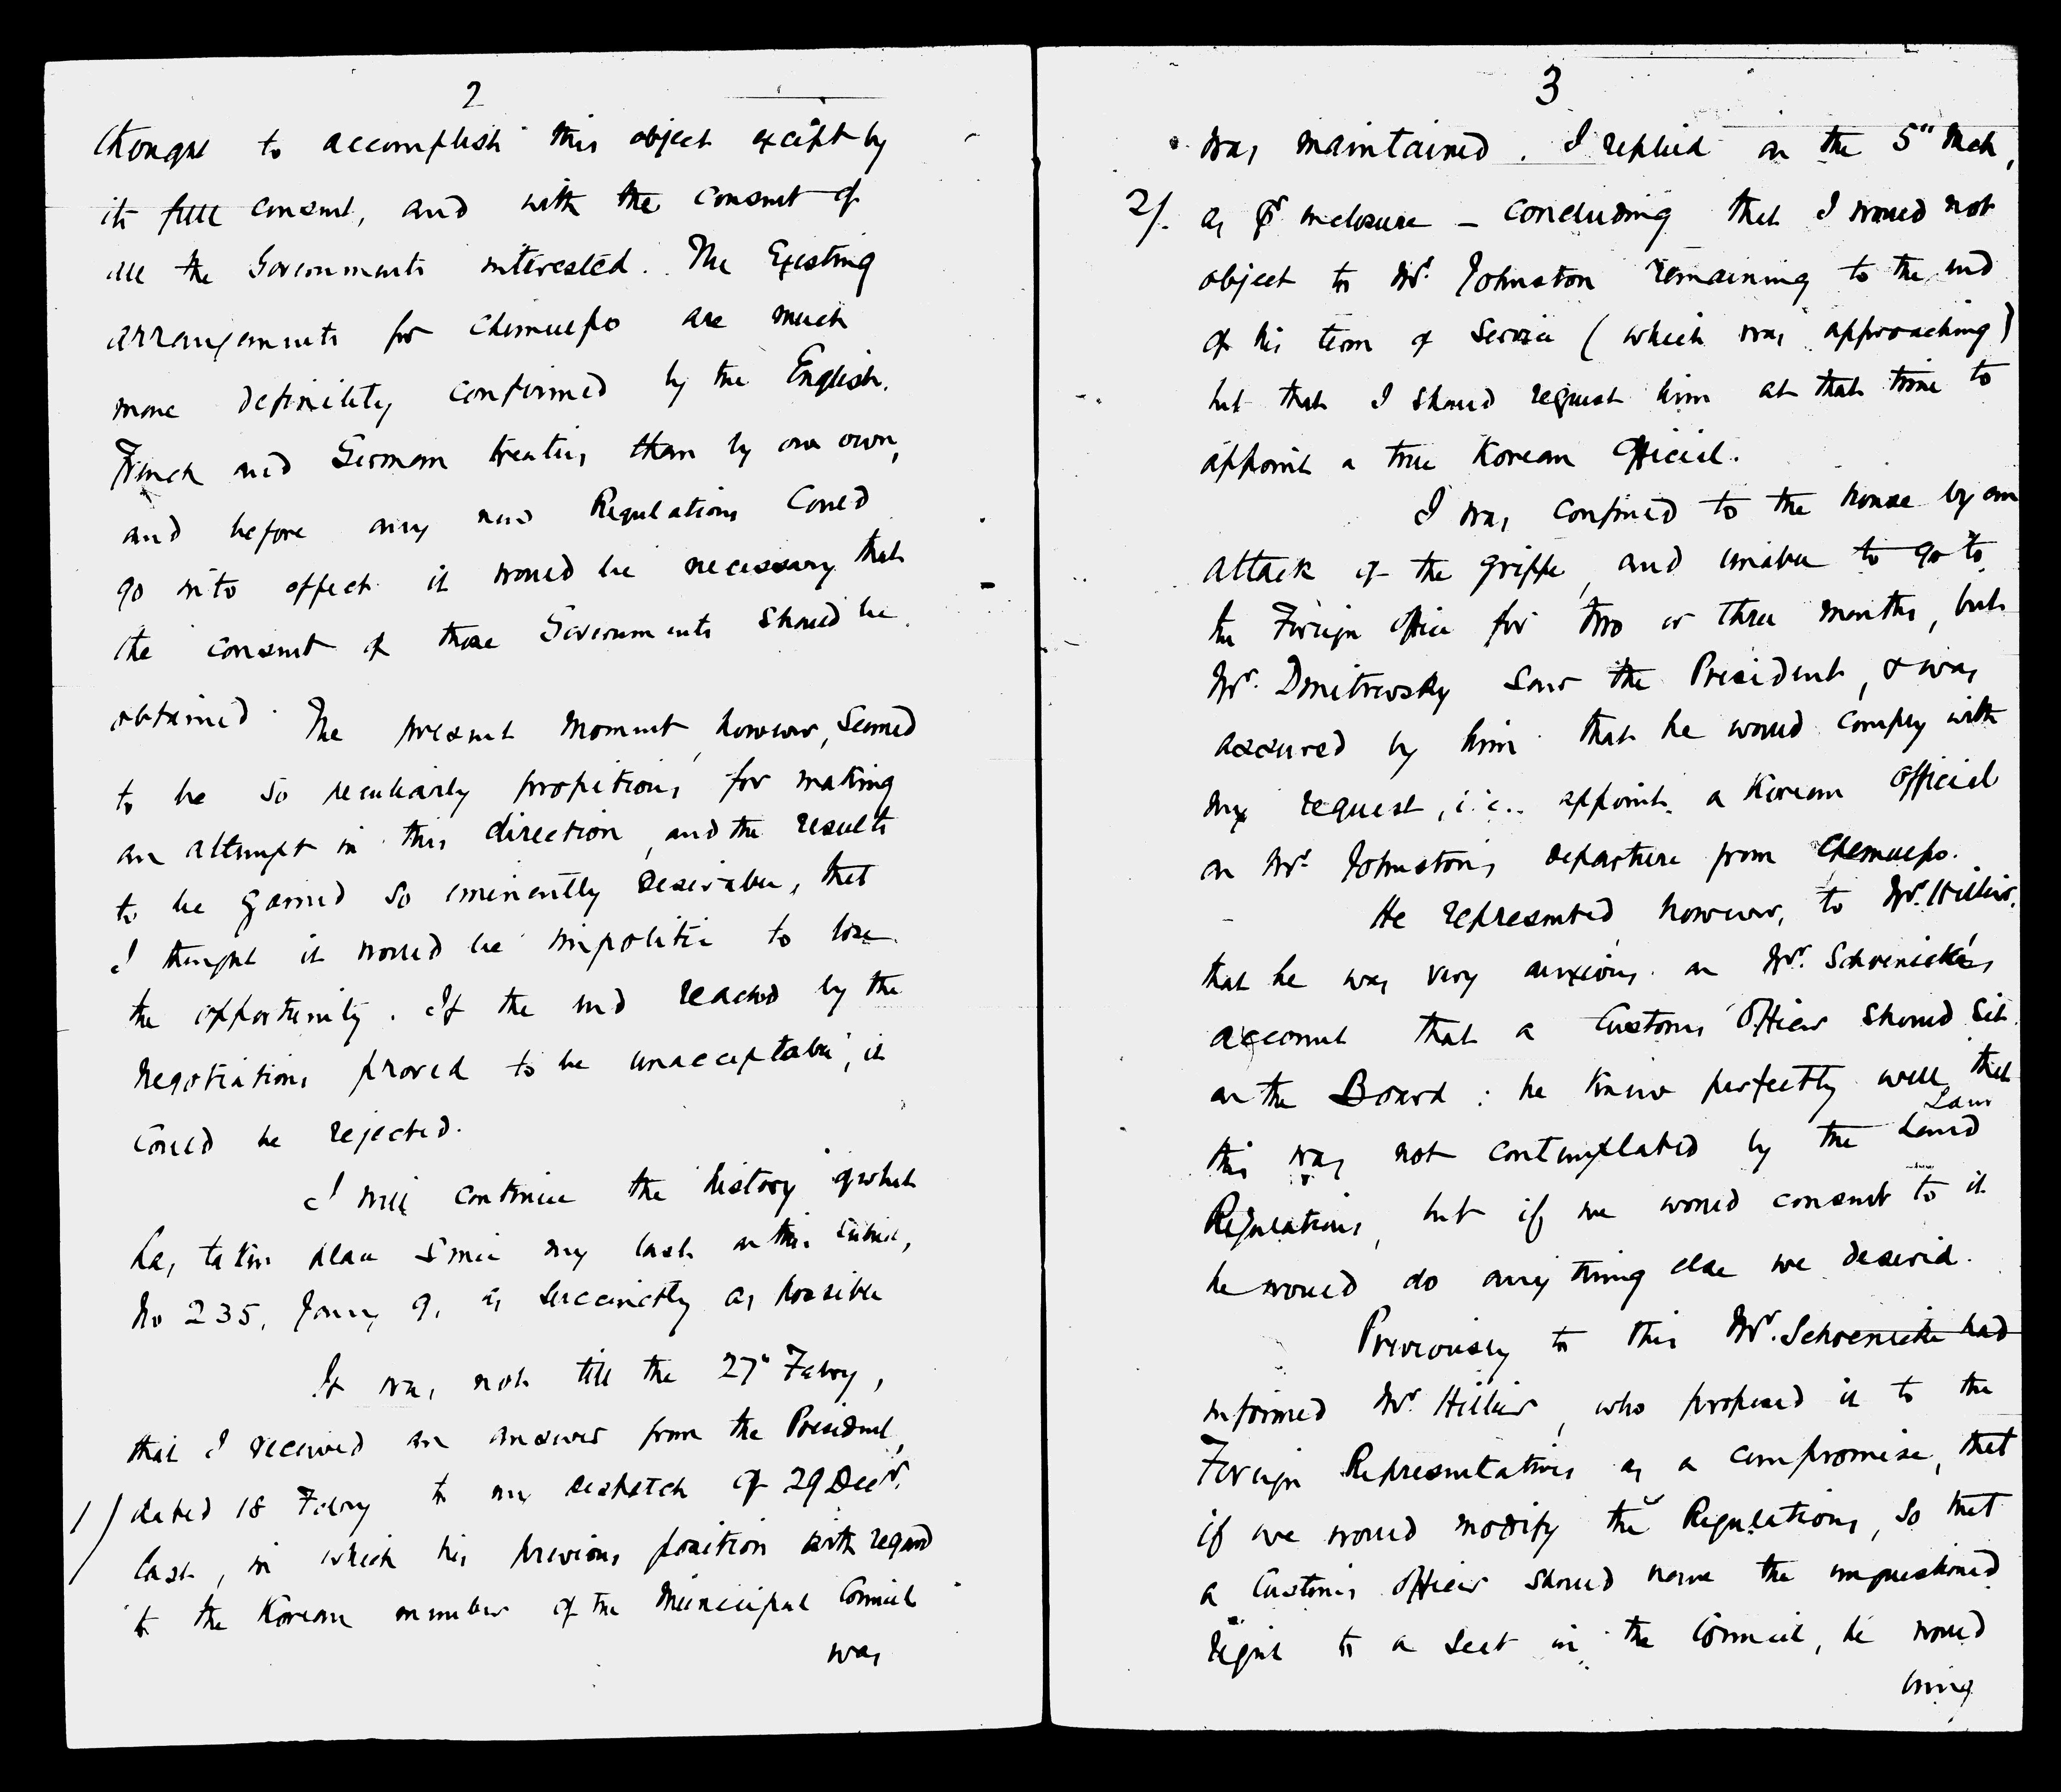 2
thought to accomplish this object except by
its full consent, and with the consent of
all the Governments interested. The Existing
arrangements for Chemulpo are much
more definitely confirmed by the English,
French and German treaties than by our own,
and before any new Regulations could
go into effect it would be necessary that
the consent of those Governments should be
obtained. The present moment, however, seemed
to be so peculiarly propitious for making
an attempt in this direction, and the results
to be gained so eminently desirable, that
I thought it would be impolitic to lose
the opportunity. If the end reached by the
negotiations proved to be unacceptable, it
could be rejected.
I will continue the history of what
has taken place since my last on this subject,
No 235, Jany 9, as succinctly as possible
It was not till the 27" Febry,
that I received an answer from the President,
1/ dated 18 Febry to my despatch of 29 Decr.
last, in which his previous position with regard
to the Korean member of the Municipal Council
was
3
was maintained. I replied on the 5" Mch,
2/. as pr enclosure – concluding that I would not
object to Mr. Johnston remaining to the end
of his term of Service (which was approaching)
but that I should request him at that time to
appoint a true Korean Official.
I was confined to the house by an
attack of the grippe, and unable to go to
the Foreign Office for two or three months, but
Mr. Dmitrevsky saw the President, & was
assured by him that he would comply with
my request, i.e. appoint a Korean Official
on Mr. Johnston's departure from Chemulpo.
He represented however, to Mr. Hillier,
that he was very anxious on Mr. Schoenicke's
account that a Customs Officer should sit
on the Board: he knew perfectly well that
this was not contemplated by the Land
Regulations, but if we would consent to it
he would do any thing else we desired.
Previously to this Mr. Schoenicke had
informed Mr. Hillier, who proposed it to the
Foreign Representatives as a compromise, that
if we would modify the Regulations, so that
a Customs Officer should have the unquestioned
right to a seat in the Council, he would
bring